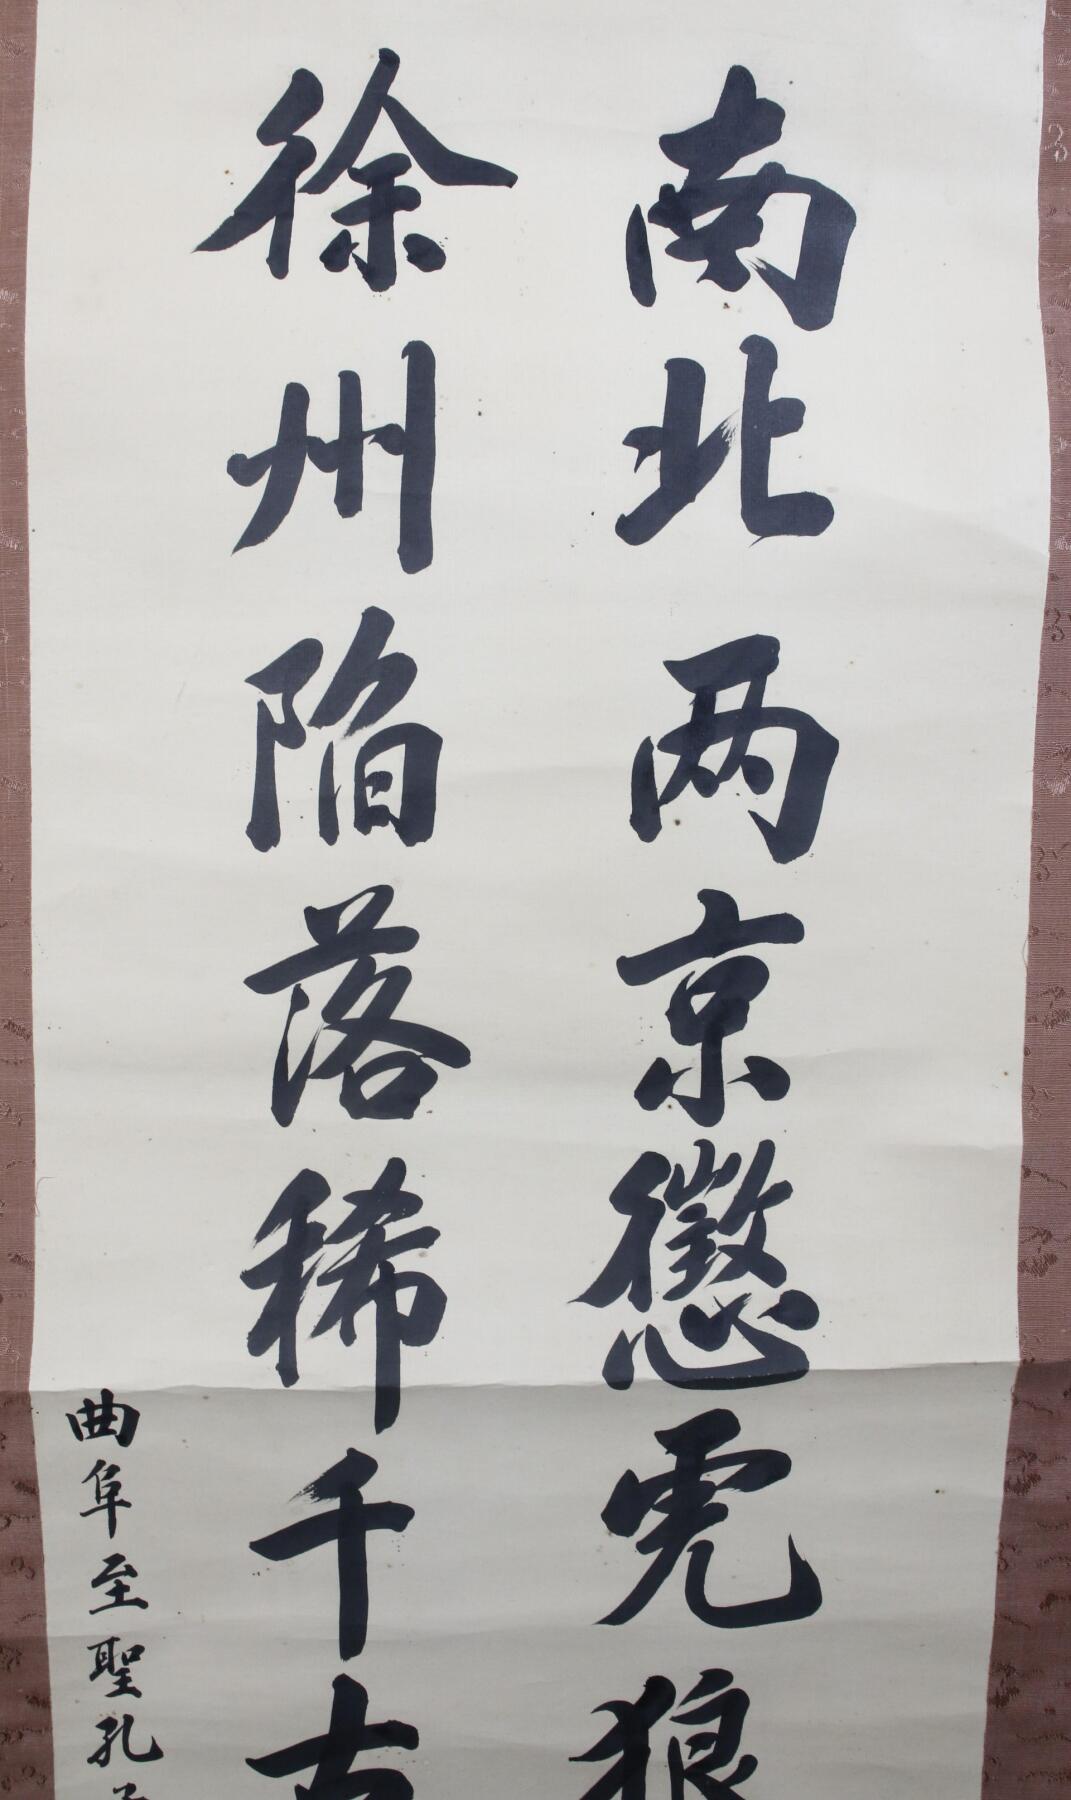 南北两京懲虎狼
徐州陷落稀千古
曲阜至聖孔子